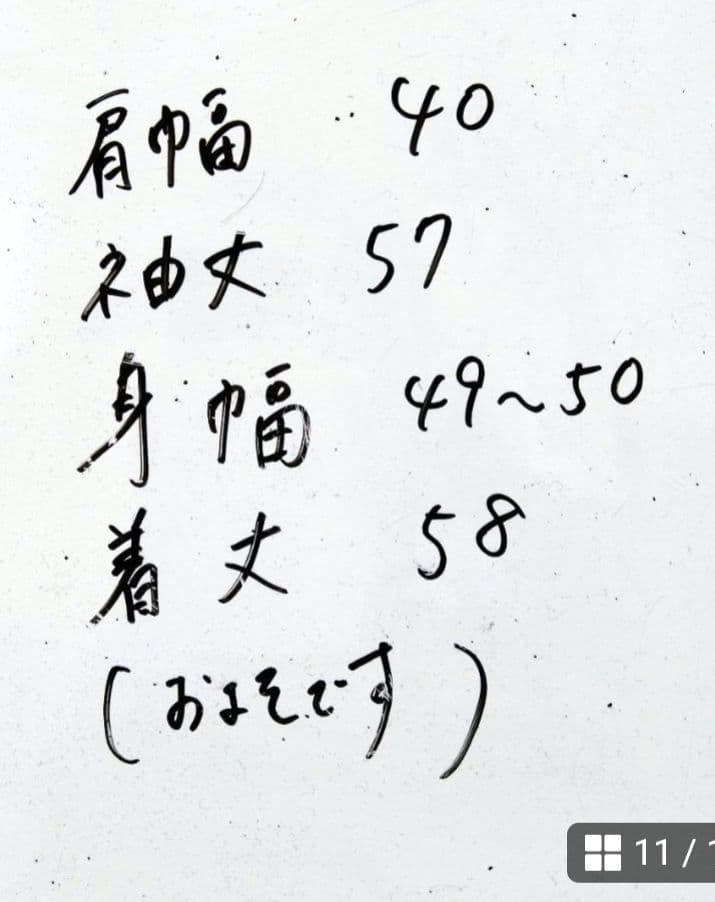 肩幅 40
袖丈 57
身幅 49~50
着丈 58
(およそです)
11 / 1